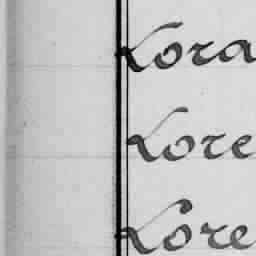 Lora
Lore
Lore